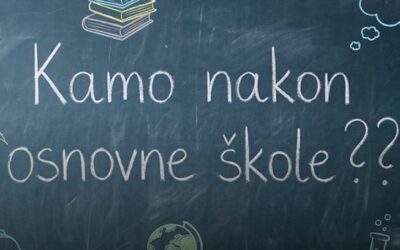 Kamo nakon
osnovne škole??